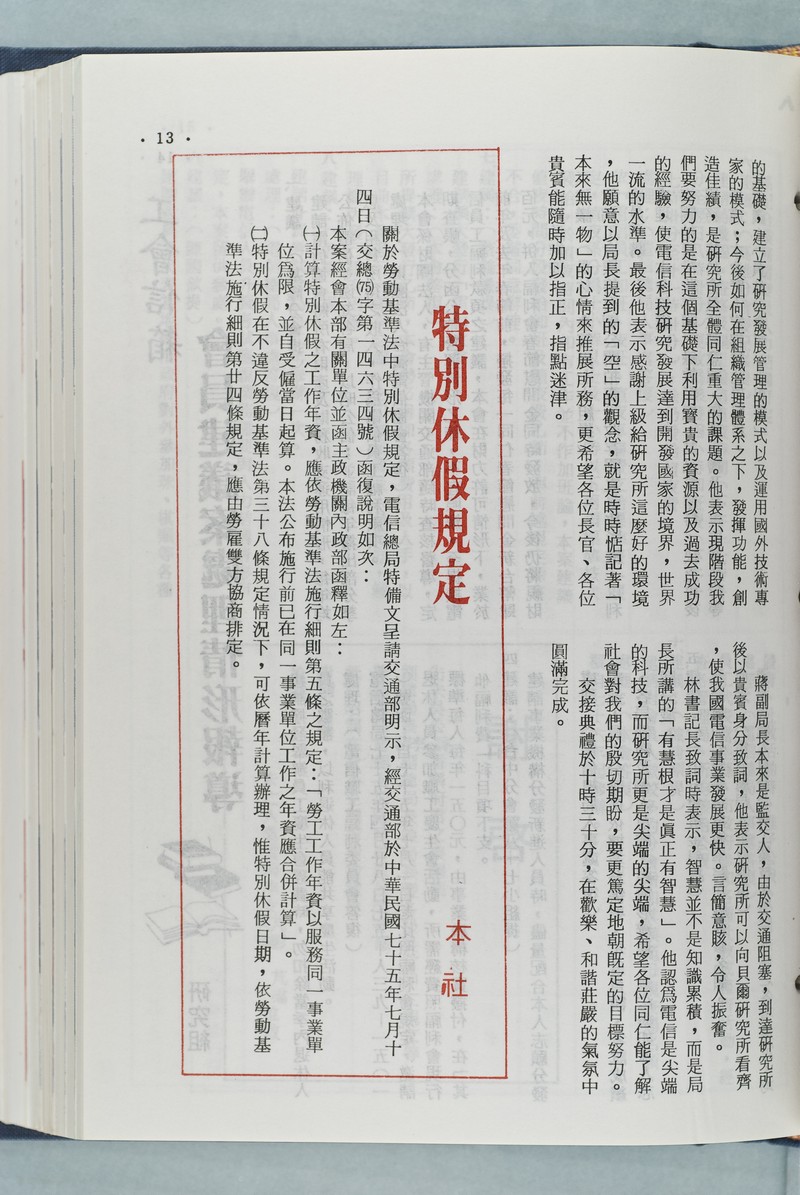 的基礎，建立了研究發展管理的模式以及運用國外技術專
家的模式；今後如何在組織管理體系之下，發揮功能，創
造佳績，是研究所全體同仁重大的課題。他表示現階段我
們要努力的是在這個基礎下利用寶貴的資源以及過去成功
的經驗，使電信科技研究發展達到開發國家的境界，世界
一流的水準。最後他表示感謝上級給研究所這麼好的環境
，他願意以局長提到的「空」的觀念，就是時時惦記著「
本來無一物」的心情來推展所務，更希望各位長官、各位
貴賓能隨時加以指正，指點迷津。
蔣副局長本來是監交人，由於交通阻塞，到達研究所
後以貴賓身分致詞，他表示研究所可以向貝爾研究所看齊
，使我國電信事業發展更快。言簡意賅，令人振奮。
林書記長致詞時表示，智慧並不是知識累積，而是局
長所講的「有慧根才是眞正有智慧」。他認爲電信是尖端
的科技，而研究所更是尖端的尖端，希望各位同仁能了解
社會對我們的殷切期盼，要更篤定地朝旣定的目標努力。
交接典禮於十時三十分，在歡樂、和諧莊嚴的氣氛中
圓滿完成。
特別休假規定
本社
關於勞動基準法中特別休假規定，電信總局特備文呈請交通部明示，經交通部於中華民國七十五年七月十
四日（交總(75)字第一四六三四號）函復說明如次：
本案經會本部有關單位並函主政機關內政部函釋如左：
㈠計算特別休假之工作年資，應依勞動基準法施行細則第五條之規定：「勞工工作年資以服務同一事業單
位爲限，並自受僱當日起算。本法公布施行前已在同一事業單位工作之年資應合併計算」。
㈡特別休假在不違反勞動基準法第三十八條規定情況下，可依曆年計算辦理，惟特別休假日期，依勞動基
準法施行細則第廿四條規定，應由勞雇雙方協商排定。
• 13 •